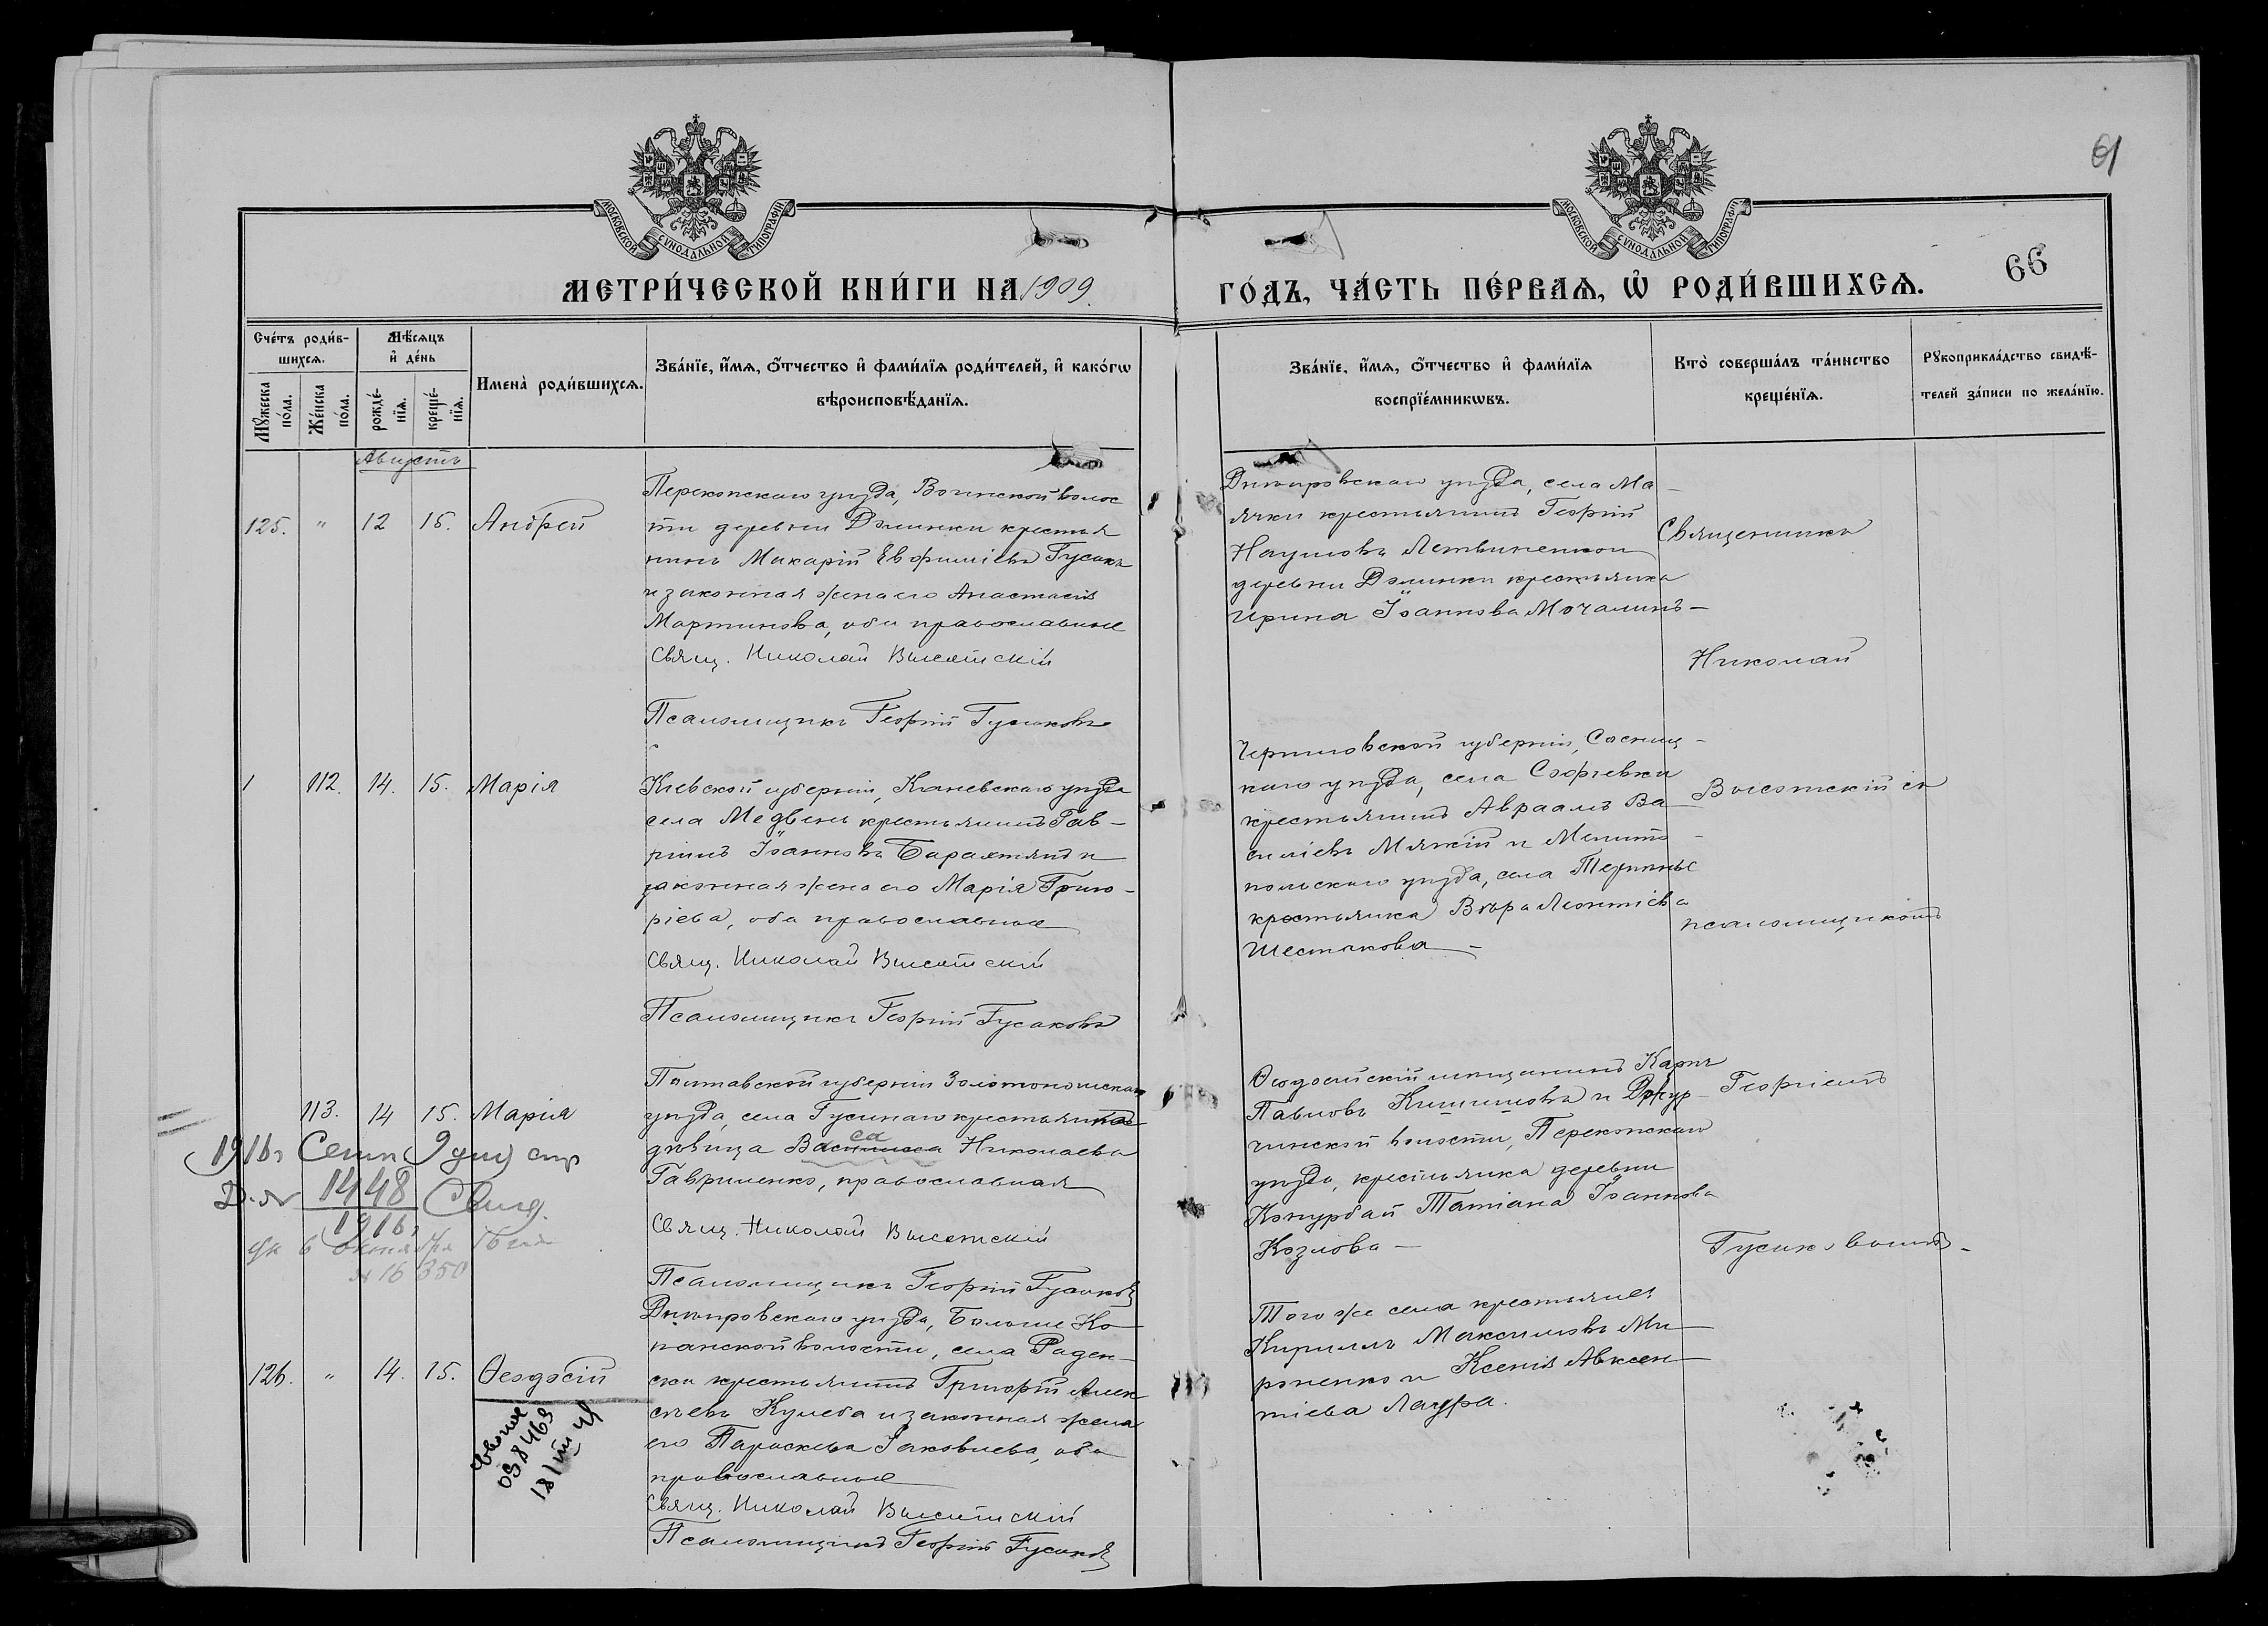 61
МОСКОВСКОЙ СѴНОДАЛЬНОЙ ТИПОГРАФІИ
МОСКОВСКОЙ СѴНОДАЛЬНОЙ ТИПОГРАФІИ
МЕТРИ́ЧЕСКОЙ КНИ́ГИ НА 1909.
ГО́ДЪ, ЧА́СТЬ ПЕ́РВАѦ, Ѡ҆ РОДИ́ВШИХСѦ.
66
Сче́тъ роди́в-
шихсѧ.
Мꙋ́жеска по́ла.
Же́нска по́ла.
Мѣ́сѧцъ
и҆ де́нь
рожде́-
нїѧ.
креще́-
нїѧ.
Имена̀ роди́вшихсѧ.
Зва́нїе, и҆́мѧ, ѻ҆́тчество и҆ фами́лїѧ роди́телей, и҆ како́гѡ
вѣроисповѣ́данїѧ.
Зва́нїе, и҆́мѧ, ѻ҆́тчество и҆ фами́лїѧ
воспрїе́мникѡвъ.
Кто̀ соверша́лъ та́инство
креще́нїѧ.
Рꙋкоприкла́дство свидѣ́-
телей за́писи по жела́нїю.
Августъ
125. " 12 15. Андрей
Перекопскаго уѣзда, Воинской волос
ти деревни Долинки крестья
нинъ Макарій Евфиміевъ Гусакъ
и законная жена его Анастасія
Мартинова, оба православные
Свящ. Николай Высотскій
Псаломщикъ Георгій Гусаковъ
Днѣпровскаго уѣзда, села Ма-
ячки крестьянинъ Георгій
Наумовъ Летвиненко и
деревни Долинки крестьянка
Ирина Іоаннова Мочалинъ-
Священникъ
Николай
1 112. 14. 15. Марія
Кіевской губерніи, Каневскаго уѣзда
села Медвень крестьянинъ Гав-
ріилъ Іоанновъ Барахтянъ и
законная жена его Марія Григо-
ріева, оба православные
Свящ. Николай Высотскій
Псаломщикъ Георгій Гусаковъ
Черниговской губерніи, Сосниц-
каго уѣзда, села Софіевки
крестьянинъ Авраамъ Ва
силіевъ Мягкій и Мелито-
польскаго уѣзда, села
крестьянка Вѣра Леонтіева
Шестакова -
Высотскій съ
псаломщикомъ
113. 14 15. Марія
Полтавской губерніи Золотоношскаго
уѣзда, села Гусинаго крестьянка
дѣвица Васса Николаева
Гавриленко, православная
Свящ. Николай Высотскій
Псаломщикъ Георгій Гусаковъ
Ѳеодосійскій мѣщанинъ Карпъ
Павловъ Кишишовъ и Джур-
чинской волости, Перекопскаго
уѣзда, крестьянка деревни
Копурбай Татіана Іоаннова
Козлова -
Георгіемъ
Гусаковымъ-
1916 г Сент 9 дня
1448
1916
Свид.
6 октября
№ 16350
126. " 14. 15. Ѳеодосій
Днѣпровскаго уѣзда, Больше Ко-
панской волости, села Раден-
ска крестьянинъ Григорій Алек
сѣевъ Кулеба и законная жена
его Параскева Іаковлева, оба
православные
Свящ. Николай Высотскій
Псаломщикъ Георгій Гусаковъ
Того же села крестьяне
Кириллъ Максимовъ Ми-
роненко и Ксенія Авксен-
тіева Лаура.
058469